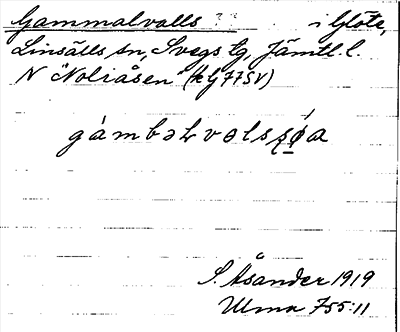 Gammalvalls ? ? i Glöte,
Linsälls sn, Svegs tg, Jämtl. l.
N "Noliåsen" (k G77SV)
gámbəLvəlsʂǿa
S. Åsander 1919
Ulma 755:11